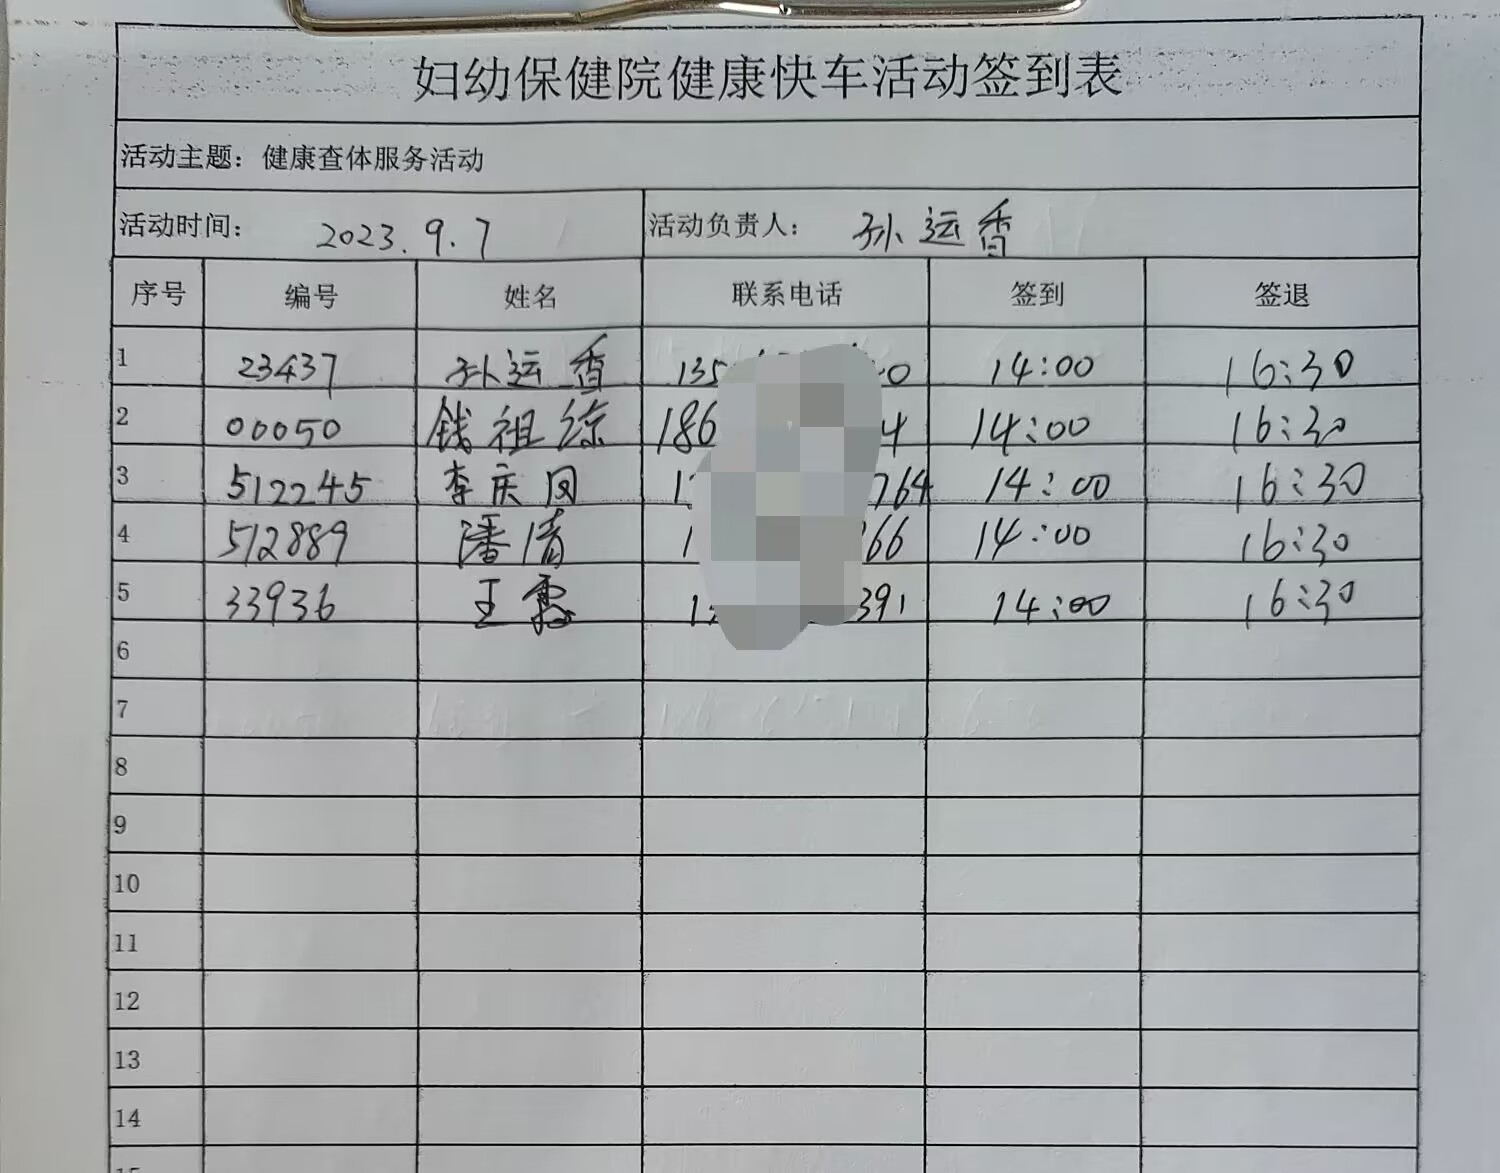 妇幼保健院健康快车活动签到表
活动主题：健康查体服务活动
活动时间： 2023.9.7 活动负责人： 孙运香
序号 编号 姓名 联系电话 签到 签退
1 23437 孙运香 135 0 14:00 16:30
2 00050 钱祖综 186 4 14:00 16:30
3 512245 李庆凤 1 764 14:00 16:30
4 512889 潘倩 1 366 14:00 16:30
5 33936 王霞 1 391 14:00 16:30
6
7
8
9
10
11
12
13
14
15